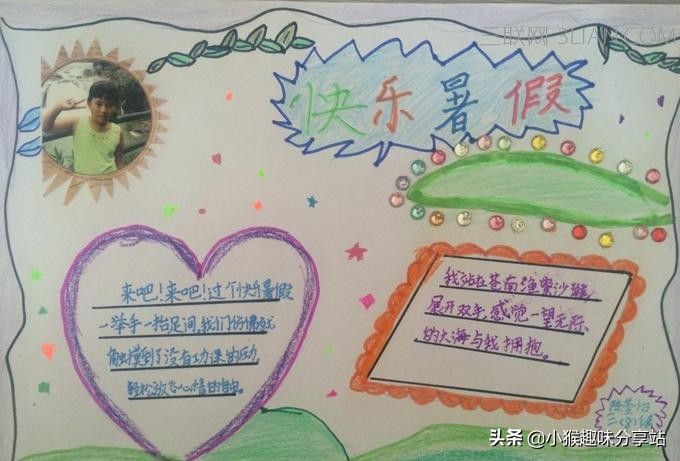 三联网 3LIAN.COM
快乐暑假
来吧!来吧!过个快乐暑假
一举手一抬足间,我们仿佛就
触摸到了没有功课的压力,
轻松放飞心情的自由。
我站在苍南渔寮沙滩
展开双手,感觉一望无际
的大海与我拥抱。
三(8)班
头条 @小猴趣味分享站